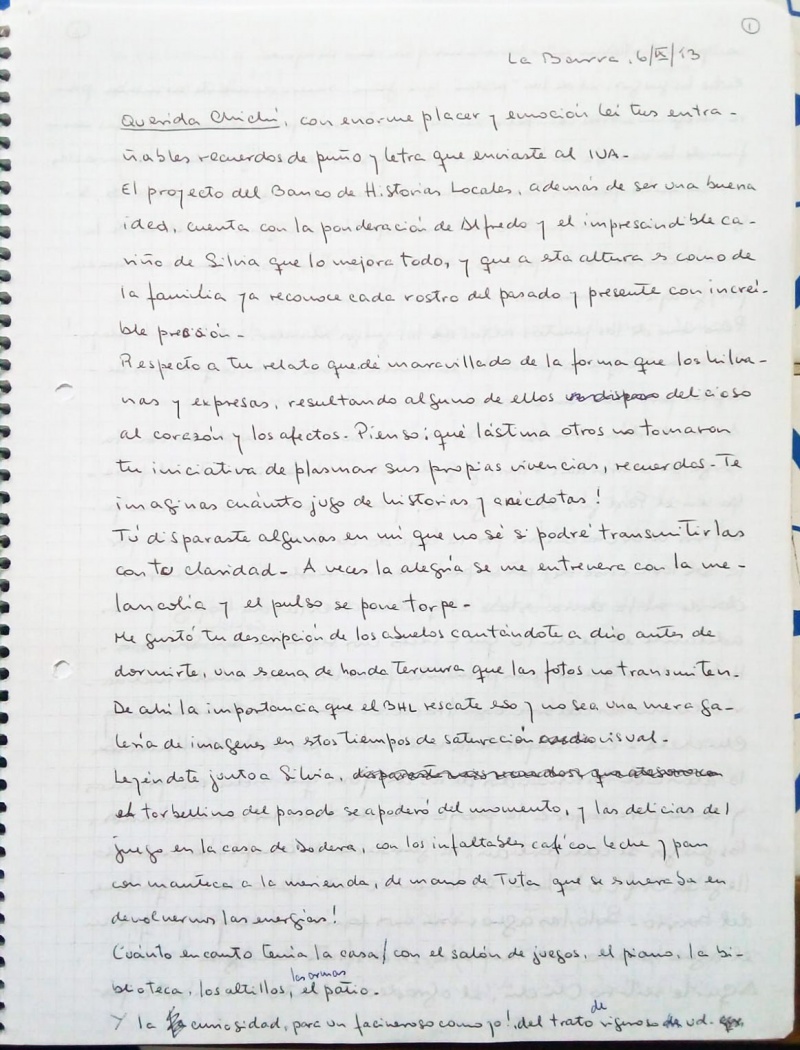 1
La Barra, 6/IX/13
Querida Chichí, con enorme placer y emoción leí tus entra-
ñables recuerdos de puño y letra que enviaste al IUA.
El proyecto del Banco de Historias Locales, además de ser una buena
idea, cuenta con la ponderación de Alfredo y el imprescindible ca-
riño de Silvia que lo mejora todo, y que a esta altura es como de
la familia ya reconoce cada rostro del pasado y presente con increí-
ble precisión.
Respecto a tu relato quedé maravillado de la forma que los hilva-
nas y expresas, resultando alguno de ellos delicioso
al corazón y los afectos. Pienso; qué lástima otros no tomaron
tu iniciativa de plasmar sus propias vivencias, recuerdos. Te
imaginas cuánto jugo de historias y anécdotas!
Tú disparaste algunas en mí que no sé si podré transmitirlas
con tu claridad. A veces la alegría se me entrevera con la me-
lancolía y el pulso se pone torpe.
Me gustó tu descripción de los abuelos cantándote a dúo antes de
dormirte, una escena de honda ternura que las fotos no transmiten.
De ahí la importancia que el BHL rescate eso y no sea una mera ga-
lería de imagenes en estos tiempos de saturación visual.
Leyéndote junto a Silvia,
el torbellino del pasado se apoderó del momento, y las delicias del
juego en la casa de Dodera, con los infaltables café con leche y pan
con manteca a la merienda, de mano de Tuta que se esmeraba en
devolvernos las energías!
Cuánto encanto tenía la casa! con el salón de juegos, el piano, la bi-
blioteca, los altillos, las armas el patio.
Y la curiosidad, para un facineroso como yo!, del trato de riguroso ud.